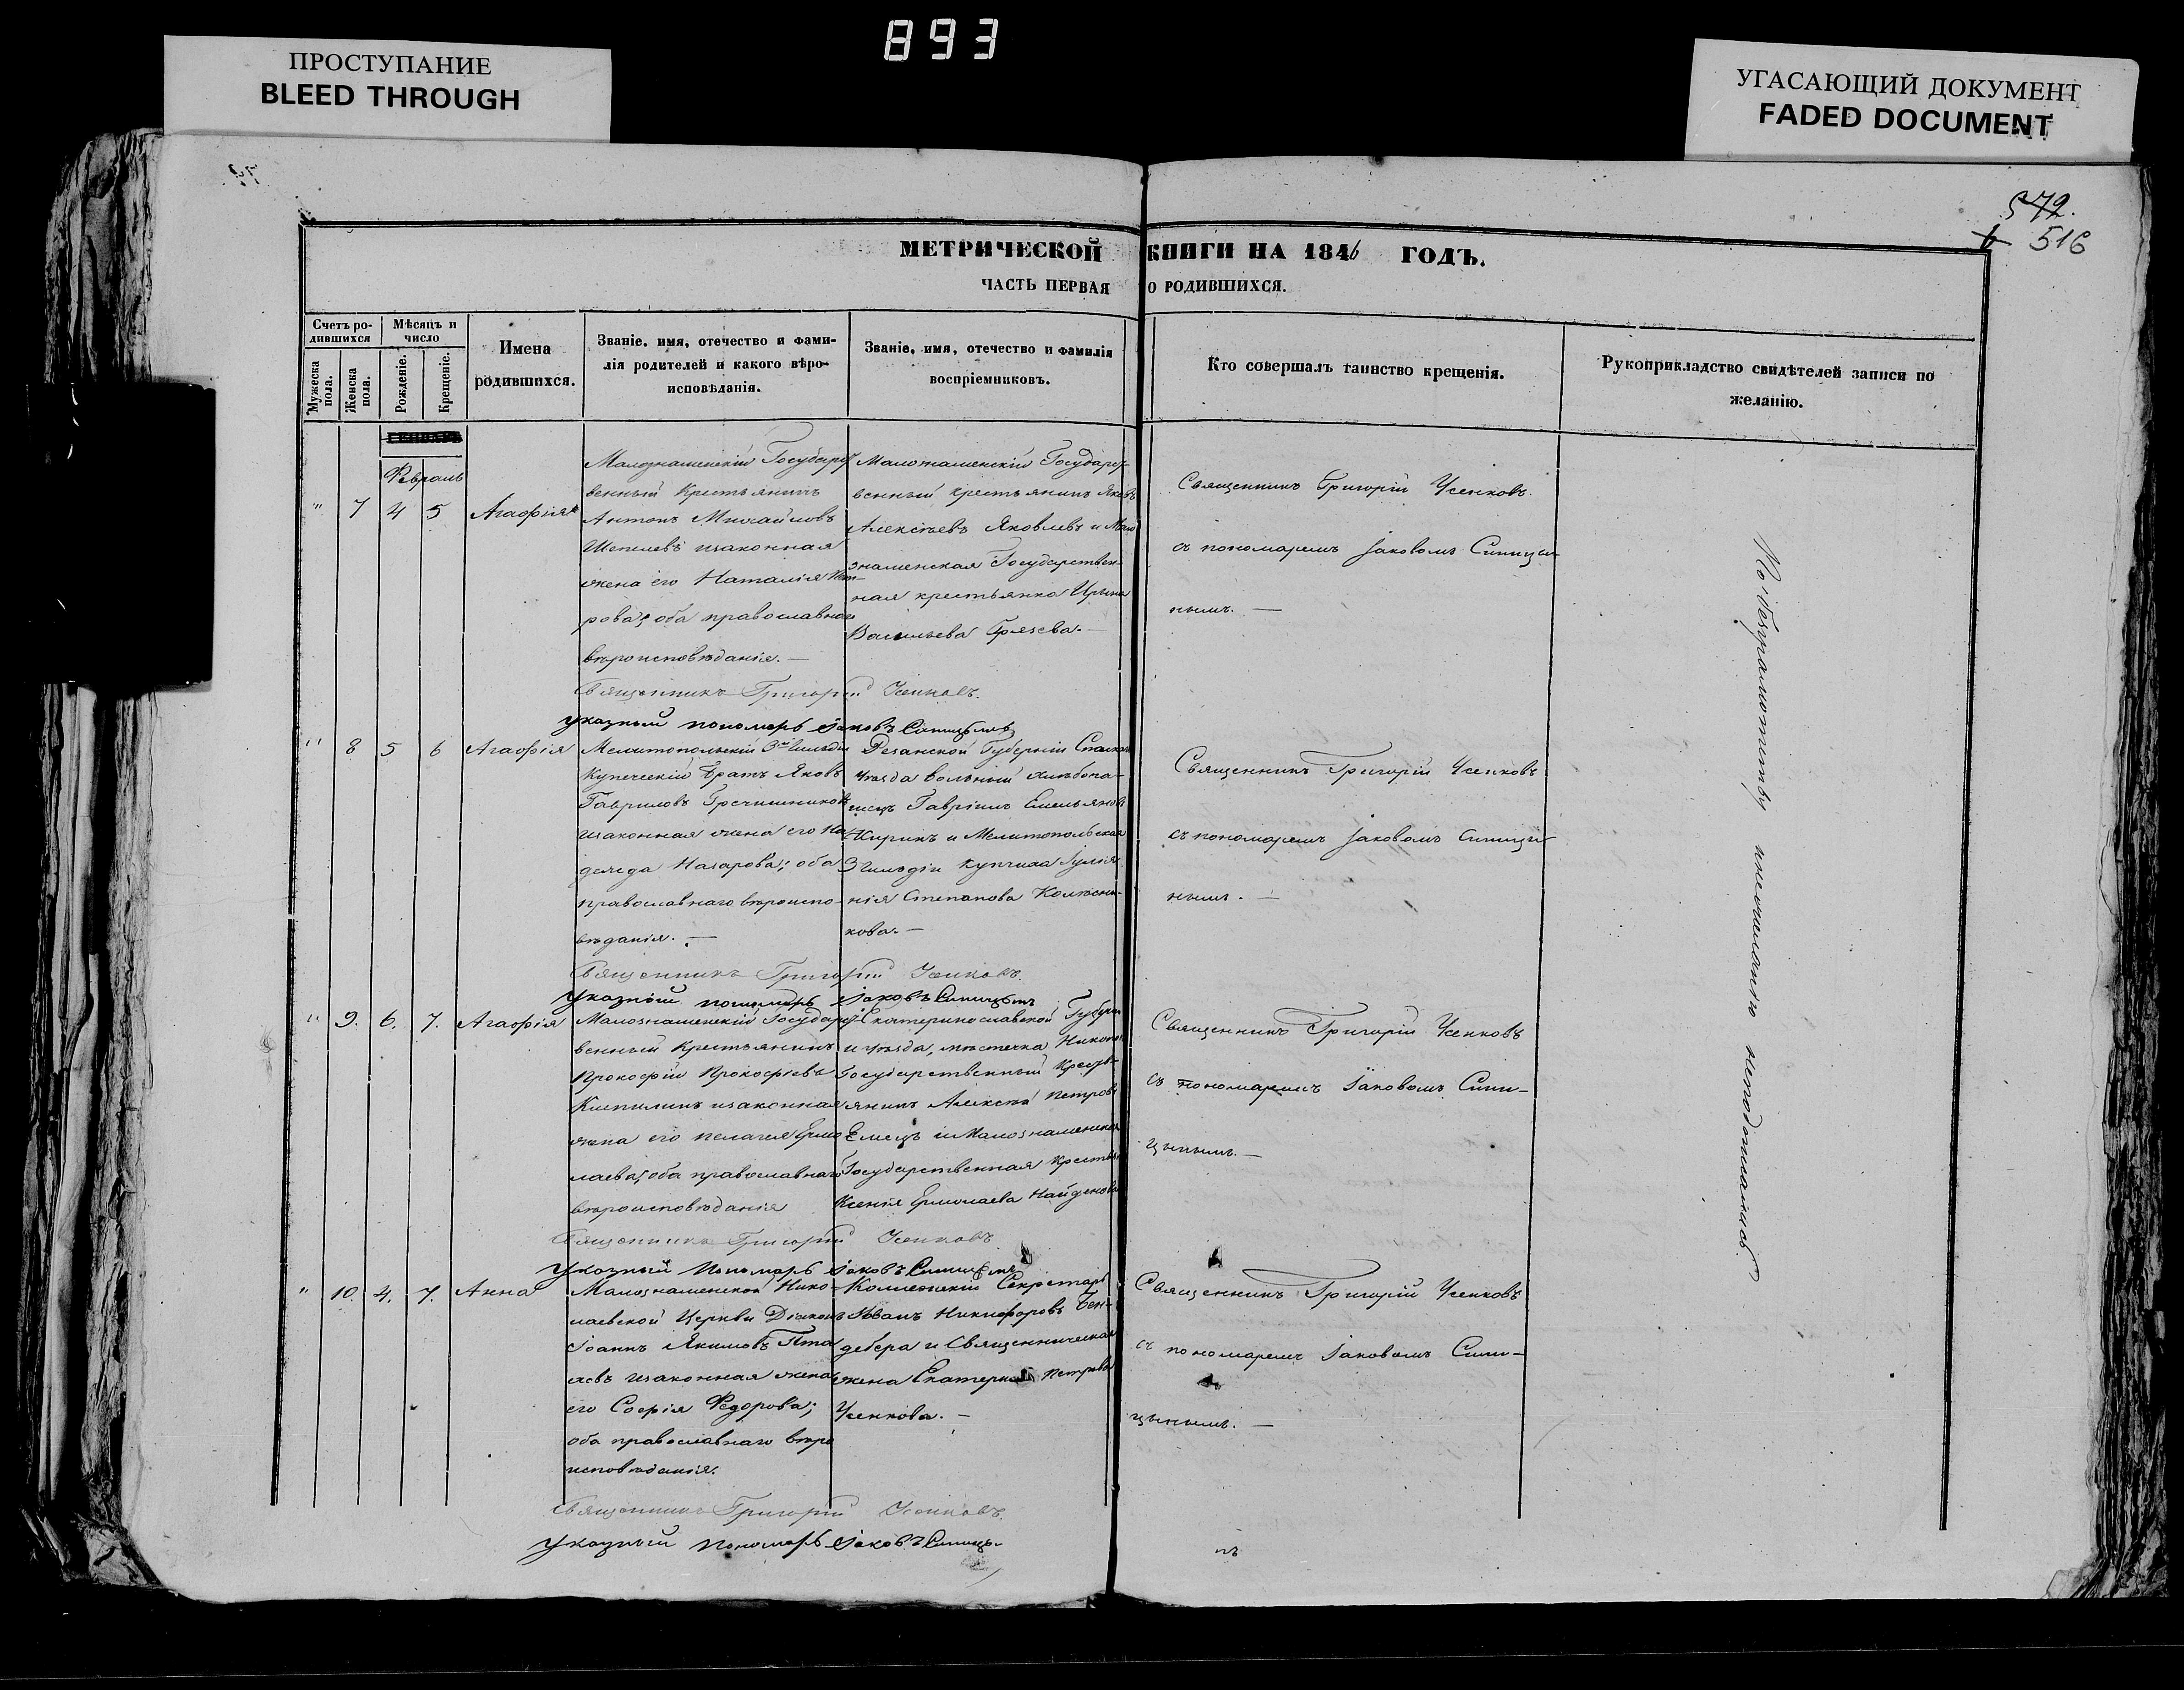 893
ПРОСТУПАНИЕ
BLEED THROUGH
УГАСАЮЩИЙ ДОКУМЕНТ
FADED DOCUMENT
572.
516
МЕТРИЧЕСКОЙ КНИГИ НА 1846 ГОДЪ.
ЧАСТЬ ПЕРВАЯ О РОДИВШИХСЯ.
Счетъ ро-
дившихся
Мужеска пола.
Женска пола.
Мѣсяцъ и
число
Рожденіе.
Крещеніе.
Имена
родившихся.
Званіе, имя, отечество и фами-
лія родителей и какого вѣро-
исповѣданія.
Званіе, имя, отечество и фамилія
воспріемниковъ.
Кто совершалъ таинство крещенія.
Рукоприкладство свидѣтелей записи по
желанію.
Февраль
" 7 4 5 Агафія
Малознаменскій Государст
венный Крестьянинъ
Антонъ Михайловъ
Шепелевъ изаконная
жена его Наталія
рова; оба православнаго
вѣроисповѣданія.—
Малознаменскій Государст
венный крестьянинъ Яковъ
Алексѣевъ Яковлевъ и Мало
знаменская Государствен-
ная крестьянка Ирина
Васильева Грязева.—
Священникъ Григорій Усенковъ
съ пономаремъ Іаковомъ Синицы-
нымъ.—
Священникъ Григорій Усенковъ.
указный пономарь Іаковъ Синицынъ
" 8 5 6 Агафія
Мелитопольскій 3й Гильдіи
Купеческій братъ Яковъ
Гавриловъ Гречишниковъ
изаконная жена его На
дежда Назарова; оба
православнаго вѣроиспо-
вѣданія.—
Резанской Губерніи
уѣзда вольный хлѣбопа-
шецъ Гавріилъ Емельяновъ
Киринъ и Мелитопольская
3 Гильдіи купчиха Іуліа
нія Степанова Колѣсни-
кова.—
Священникъ Григорій Усенковъ
съ пономаремъ Іаковомъ Синицы
нымъ.—
Священникъ Григорій Усенковъ.
Указный пономарь Іаковъ Синицынъ
" 9. 6. 7. Агафія
Малознаменскій Государст
венный Крестьянинъ
Прокофій Прокофіевъ
изаконная
жена его Пелагея Ермо
лаева; оба православнаго
вѣроисповѣданія
Екатеринославской Губерніи
и уѣзда, мѣстечка Никополя
Государственный Кресть-
янинъ Алексѣй Петровъ
Емецъ и Малознаменская
Государственная Крестьян
Ксенія Ермолаева Найденова
Священникъ Григорій Усенковъ
съ пономаремъ Іаковомъ Сини-
цынымъ.—
Священникъ Григорій Усенковъ
Указный Пономарь Іаковъ Синицынъ
" 10. 4. 7. Анна
Малознаменской Нико-
лаевской Церкви Діаконъ
Іоаннъ Якимовъ Пта
хевъ изаконная жена
его Софія Федорова;
оба православнаго вѣро
исповѣданія.
Коллежскій Секретарь
Иванъ Никифоровъ Бен-
дебера и Священническая
жена Екатерина Петрова
Усенкова.—
Священникъ Григорій Усенковъ
съ пономаремъ Іаковомъ Сини-
цынымъ.—
Священникъ Григорій Усенковъ.
Указный пономарь Іаковъ Синицы-
нъ
По безграмотству